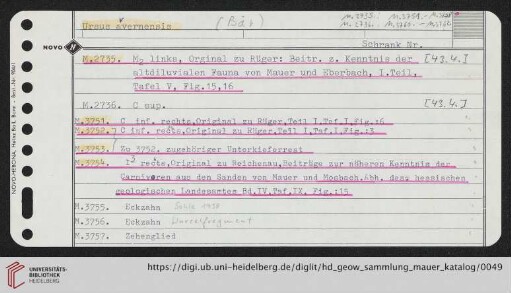 Ursus avernensis (Bär)
Schrank Nr.
NOVO
M.2735. M₂ links, Orginal zu Rüger: Beitr. z. Kenntnis der [43.4.]
altdiluvialen Fauna von Mauer und Eberbach, I.Teil,
Tafel V, Fig.15,16
M.2736. C sup. [43.4.]
M.3751. C inf. rechts,Original zu Rüger,Teil I,Taf.I,Fig.:6
M.3752. C inf. rechts,Original zu Rüger,Teil I,Taf.I,Fig.:3
M.3753. Zu 3752. zugehöriger Unterkieferrest
M.3754. I³ rechts,Original zu Reichenau,Beiträge zur näheren Kenntnis der
Carnivoren aus den Sanden von Mauer und Mosbach.Abh. des: hessischen
geologischen Landesamtes Bd.IV,Taf.IX, Fig.:15
M.3755. Eckzahn
M.3756. Eckzahn
M.3757. Zehenglied
UNIVERSITÄTS-
BIBLIOTHEK
HEIDELBERG
https://digi.ub.uni-heidelberg.de/diglit/hd_geow_sammlung_mauer_katalog/0049